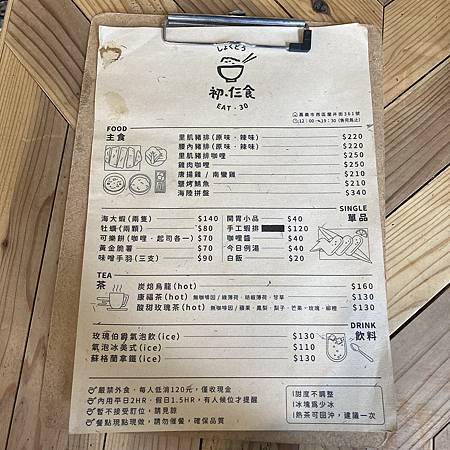 しょくどう
初.仁食
EAT.30
嘉義市西區蘭井街361號
12:00~19:30 (售完為止)
FOOD
主食
里肌豬排(原味.辣味) $220
腰內豬排(原味.辣味) $220
里肌豬排咖哩 $250
雞肉咖哩 $250
唐揚雞/南蠻雞 $210
鹽烤鯖魚 $210
海陸拼盤 $340
SINGLE
單品
海大蝦(兩隻) $140
牡蠣(兩顆) $80
可樂餅(咖哩.起司各一) $70
黃金脆薯 $70
味噌手羽(三支) $90
開胃小品 $40
手工蝦排 $120
咖哩醬 $40
今日例湯 $40
白飯 $20
TEA
茶
炭焙烏龍(hot) $160
康福茶(hot) 無咖啡因/綠薄荷.胡椒薄荷.甘草 $130
酸甜玫瑰茶(hot) 無咖啡因/蘋果.鳳梨.梨子.芒果.玫瑰.柳橙 $130
DRINK
飲料
玫瑰伯爵氣泡飲(ice) $130
氣泡冰美式(ice) $110
蘇格蘭拿鐵(ice) $130
嚴禁外食.每人低消120元,僅收現金
內用平日2HR,假日1.5HR,有人候位才提醒
暫不接受訂位,請見諒
餐點現點現做,請勿催餐,確保品質
甜度不調整
冰塊為少冰
熱茶可回沖,建議一次